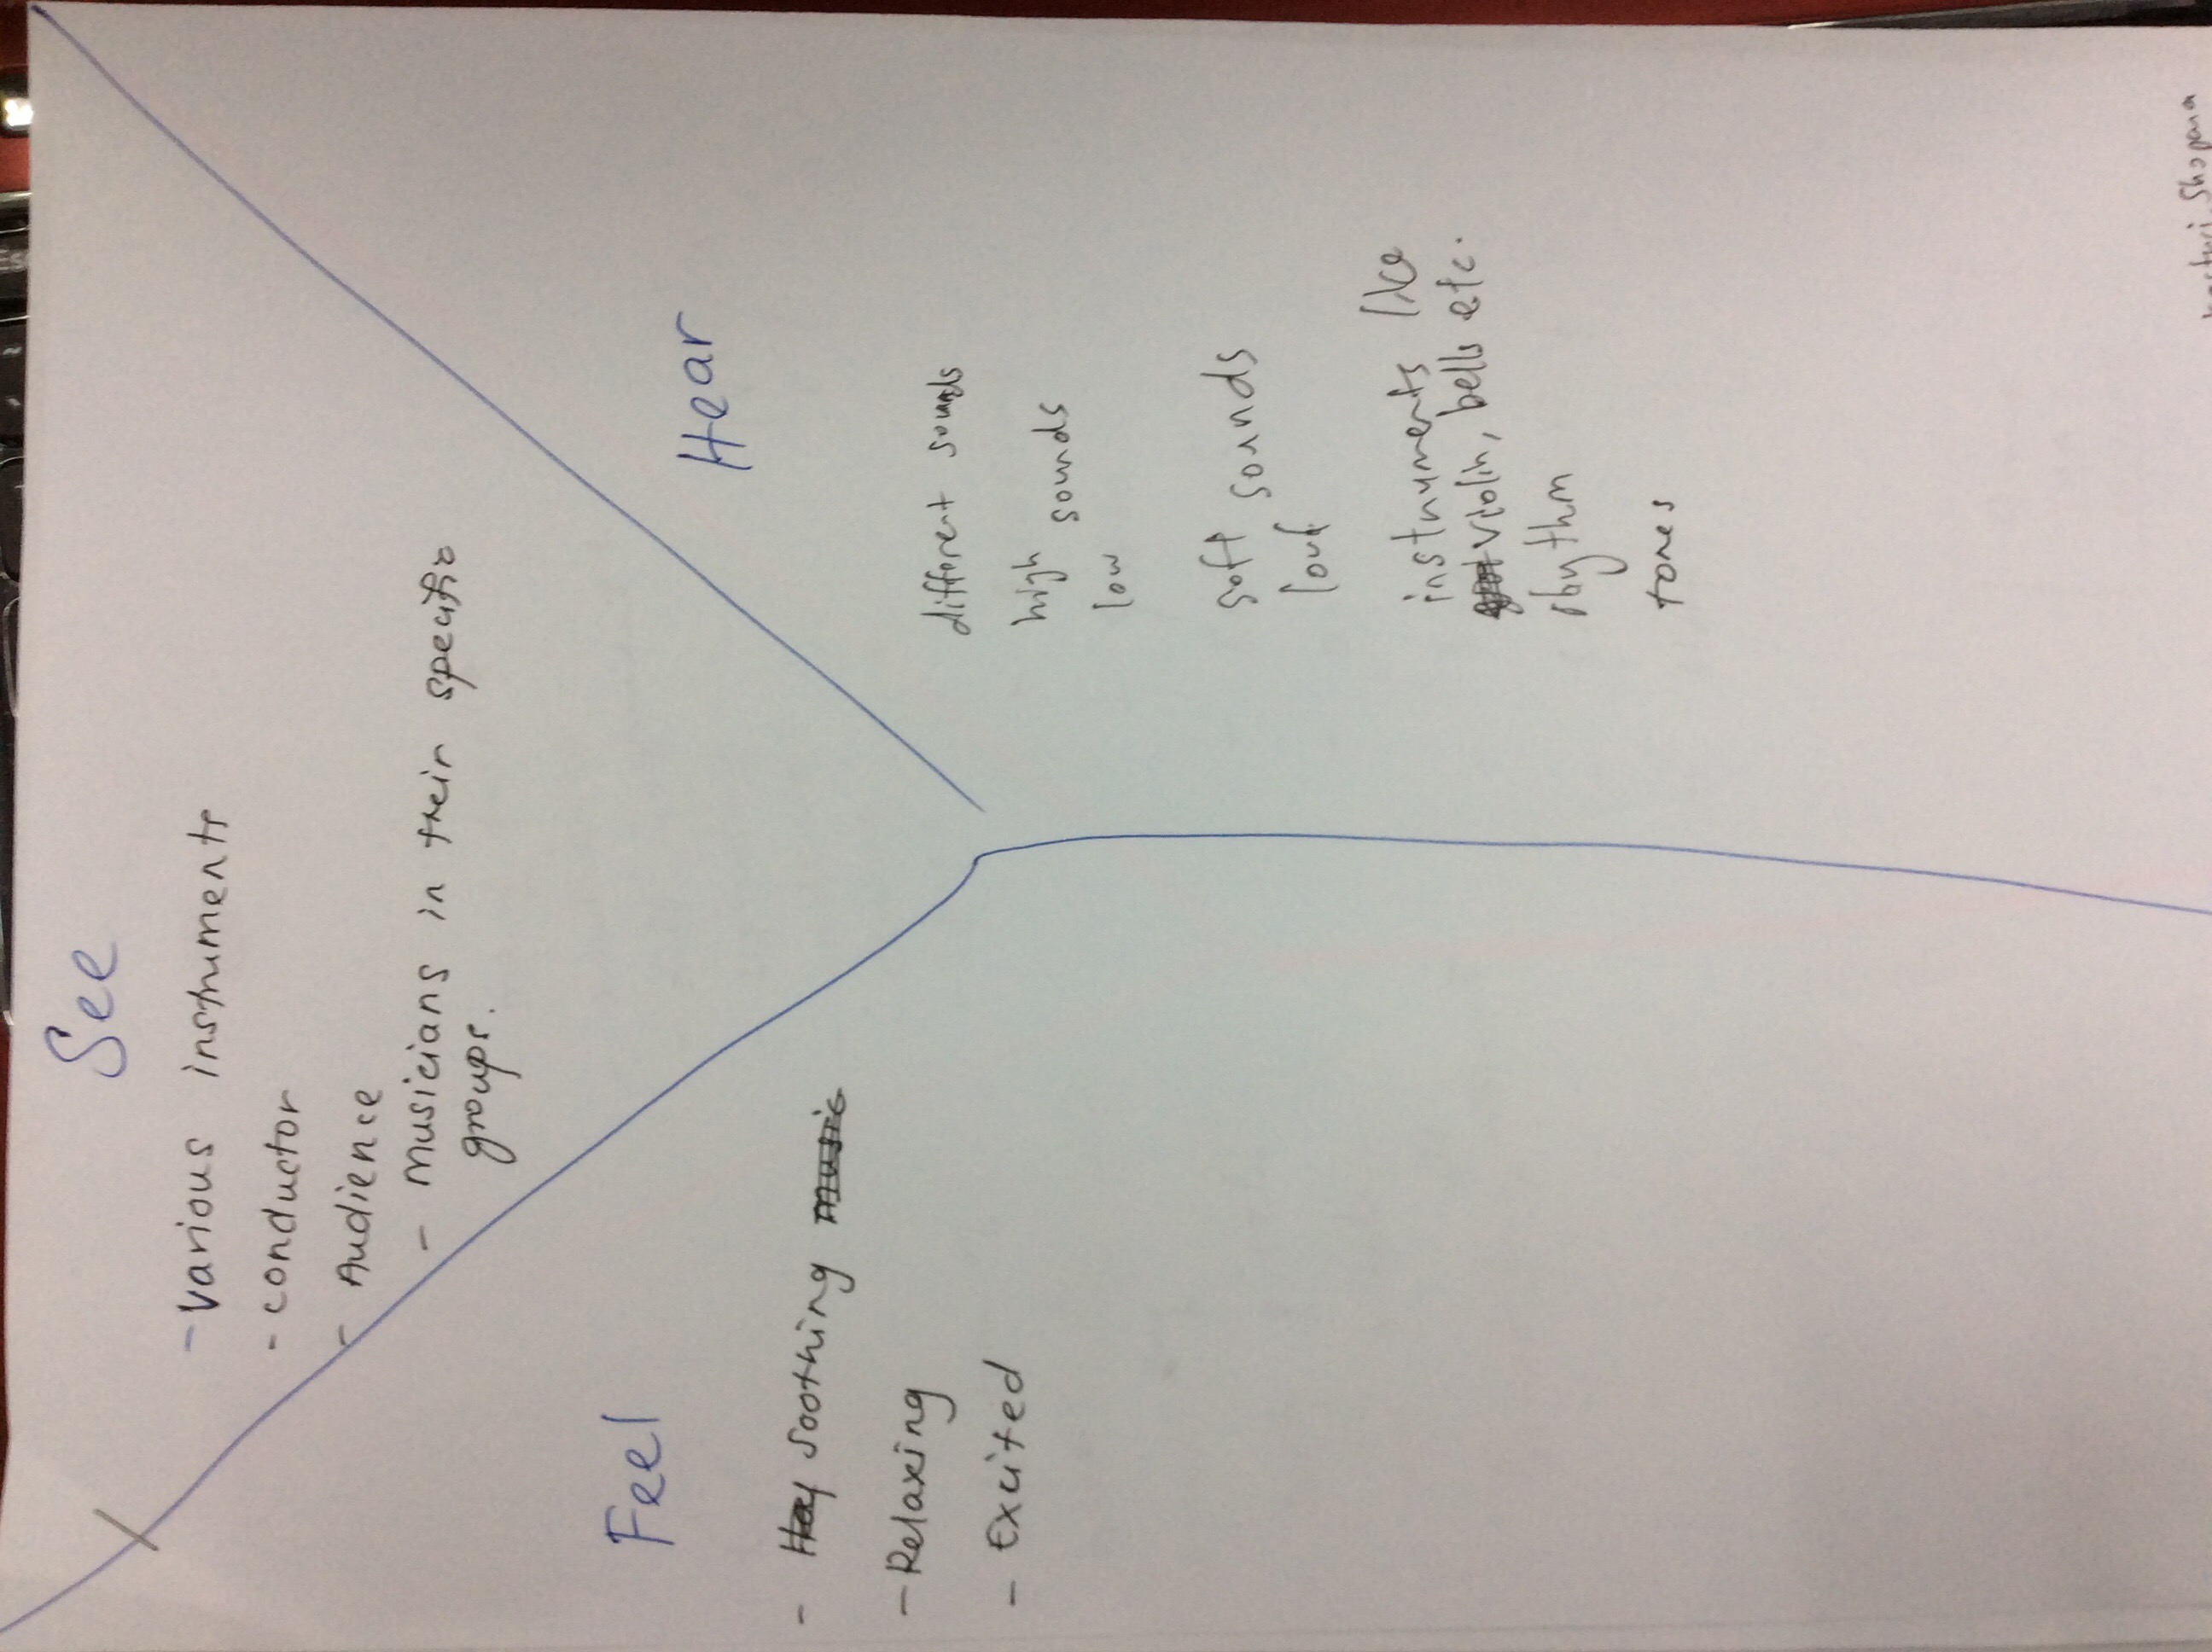 See
- Various instruments
- conductor
- Audience
- Musicians in their specific
groups.
Feel
- Soothing
- Relaxing
- Excited
Hear
different sounds
high sounds
low
soft sounds
loud
instruments like
violin, bells etc.
rhythm
tones
Shopana